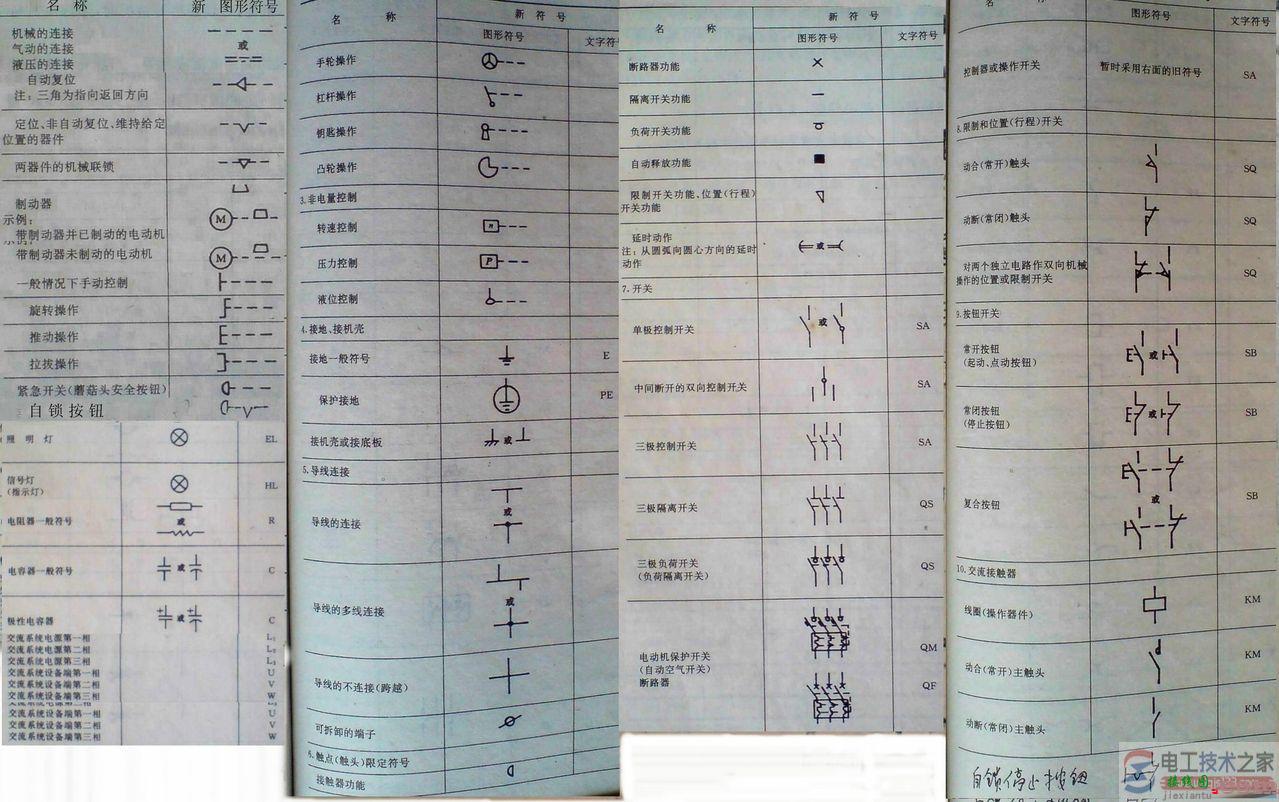 名 称 新 图形符号
机械的连接
气动的连接 或
液压的连接
自动复位
注：三角为指向返回方向
定位、非自动复位、维持给定
位置的器件
两器件的机械联锁
制动器
示例：
带制动器并已制动的电动机 M
带制动器未制动的电动机 M
一般情况下手动控制
旋转操作
推动操作
拉拔操作
紧急开关(蘑菇头安全按钮)
自锁按钮
照 明 灯 EL
信号灯 HL
(指示灯)
电阻器一般符号 或 R
电容器一般符号 或 C
极性电容器 或 C
交流系统电源第一相 L₁
交流系统电源第二相 L₂
交流系统电源第三相 L₃
交流系统设备端第一相 U
交流系统设备端第二相 V
交流系统设备端第三相 W
交流系统设备端第一相 U
交流系统设备端第二相 V
交流系统设备端第三相 W
名 称 新 符 号
图形符号 文字符
手轮操作
杠杆操作
钥匙操作
凸轮操作
3.非电量控制
转速控制 n
压力控制 P
液位控制
4.接地、接机壳
接地一般符号 E
保护接地 PE
接机壳或接底板 或
5.导线连接
导线的连接 或
导线的多线连接 或
导线的不连接(跨越)
可拆卸的端子
6.触点(触头)限定符号
接触器功能
名 称 新 符 号
图形符号 文字符号
断路器功能
隔离开关功能
负荷开关功能
自动释放功能
限制开关功能、位置(行程)
开关功能
延时动作 或
注：从圆弧向圆心方向的延时
动作
7.开关
单极控制开关 或 SA
中间断开的双向控制开关 SA
三极控制开关 SA
三极隔离开关 QS
三极负荷开关 QS
(负荷隔离开关)
电动机保护开关 QM
(自动空气开关)
断路器 QF
名 称 图形符号 文字符号
控制器或操作开关 暂时采用右面的旧符号 SA
8.限制和位置(行程)开关
动合(常开)触头 SQ
动断(常闭)触头 SQ
对两个独立电路作双向机械 SQ
操作的位置或限制开关
9.按钮开关
常开按钮 或 SB
(起动、点动按钮)
常闭按钮 或 SB
(停止按钮)
复合按钮 或 SB
10.交流接触器
线圈(操作器件) KM
动合(常开)主触头 KM
动断(常闭)主触头 KM
自锁停止按钮
电工技术之家
接线图
jiexiantu